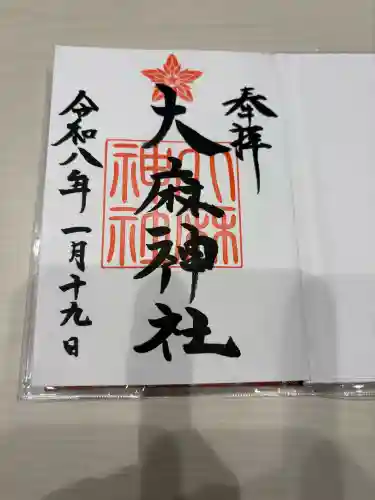 奉拝
大麻神社
令和八年一月十九日
大麻
神社